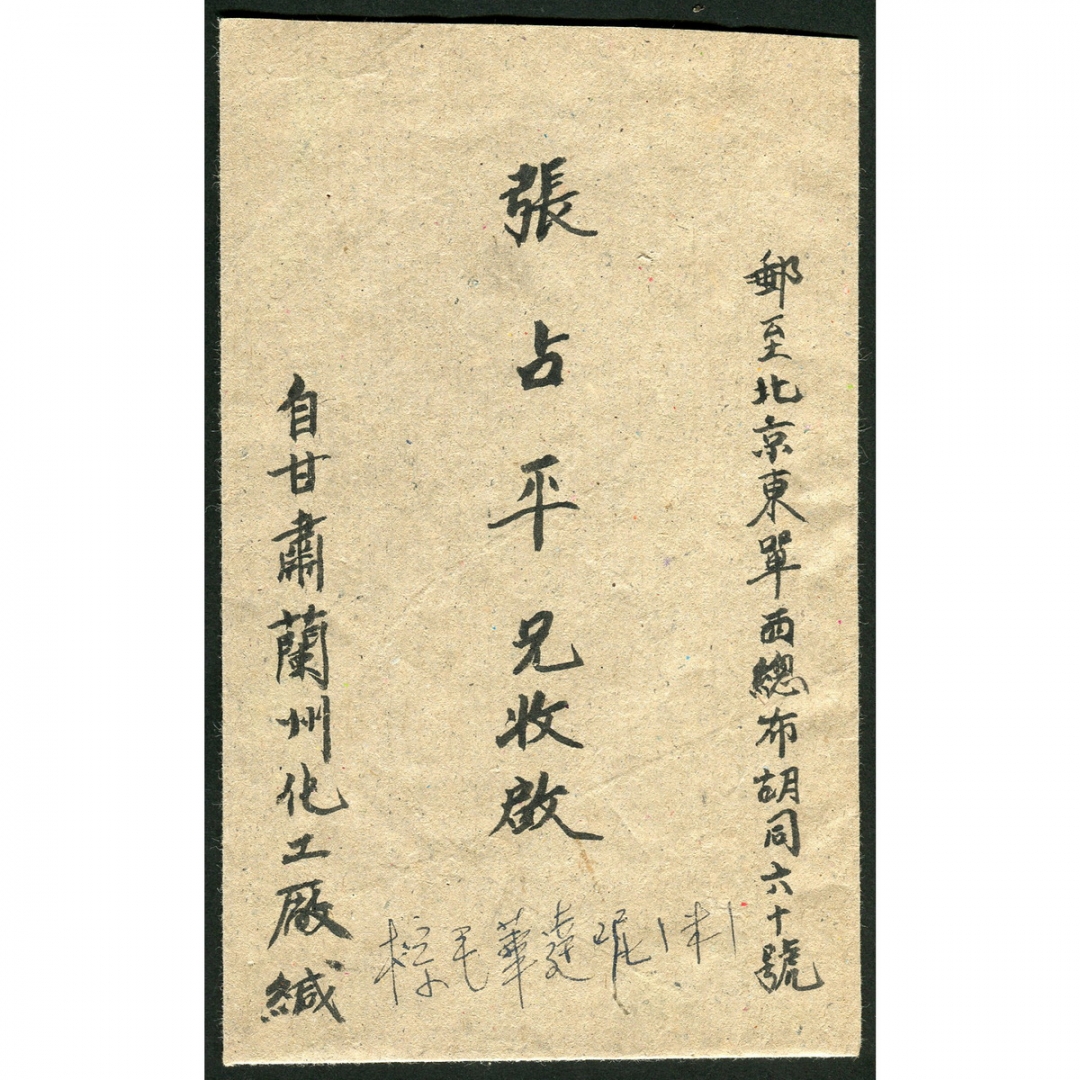 郵至北京東單西總布胡同六十號
張占平兄收啟
自甘肅蘭州化工廠緘
毛華達呢